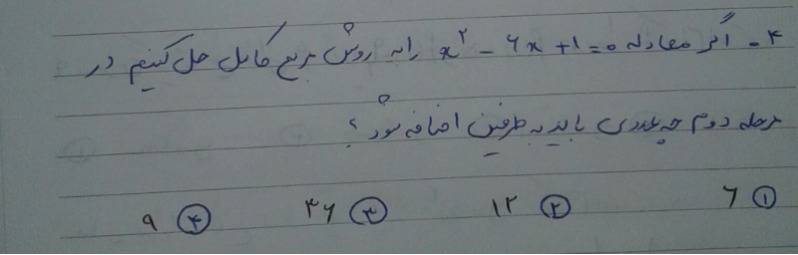 ۴. اگر معادله x² - ۶x + ۱ = ۰ را به روش مربع کامل حل کنیم در
مرحله دوم چه عددی باید به طرفین اضافه شود؟
① ۶ ② ۱۲ ③ ۳۶ ④ ۹